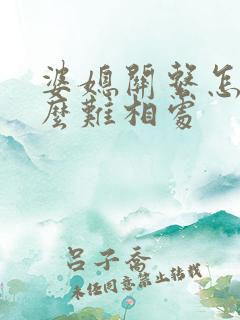 婆媳關繫怎
麼難相處
呂子喬
未經同意禁止轉載